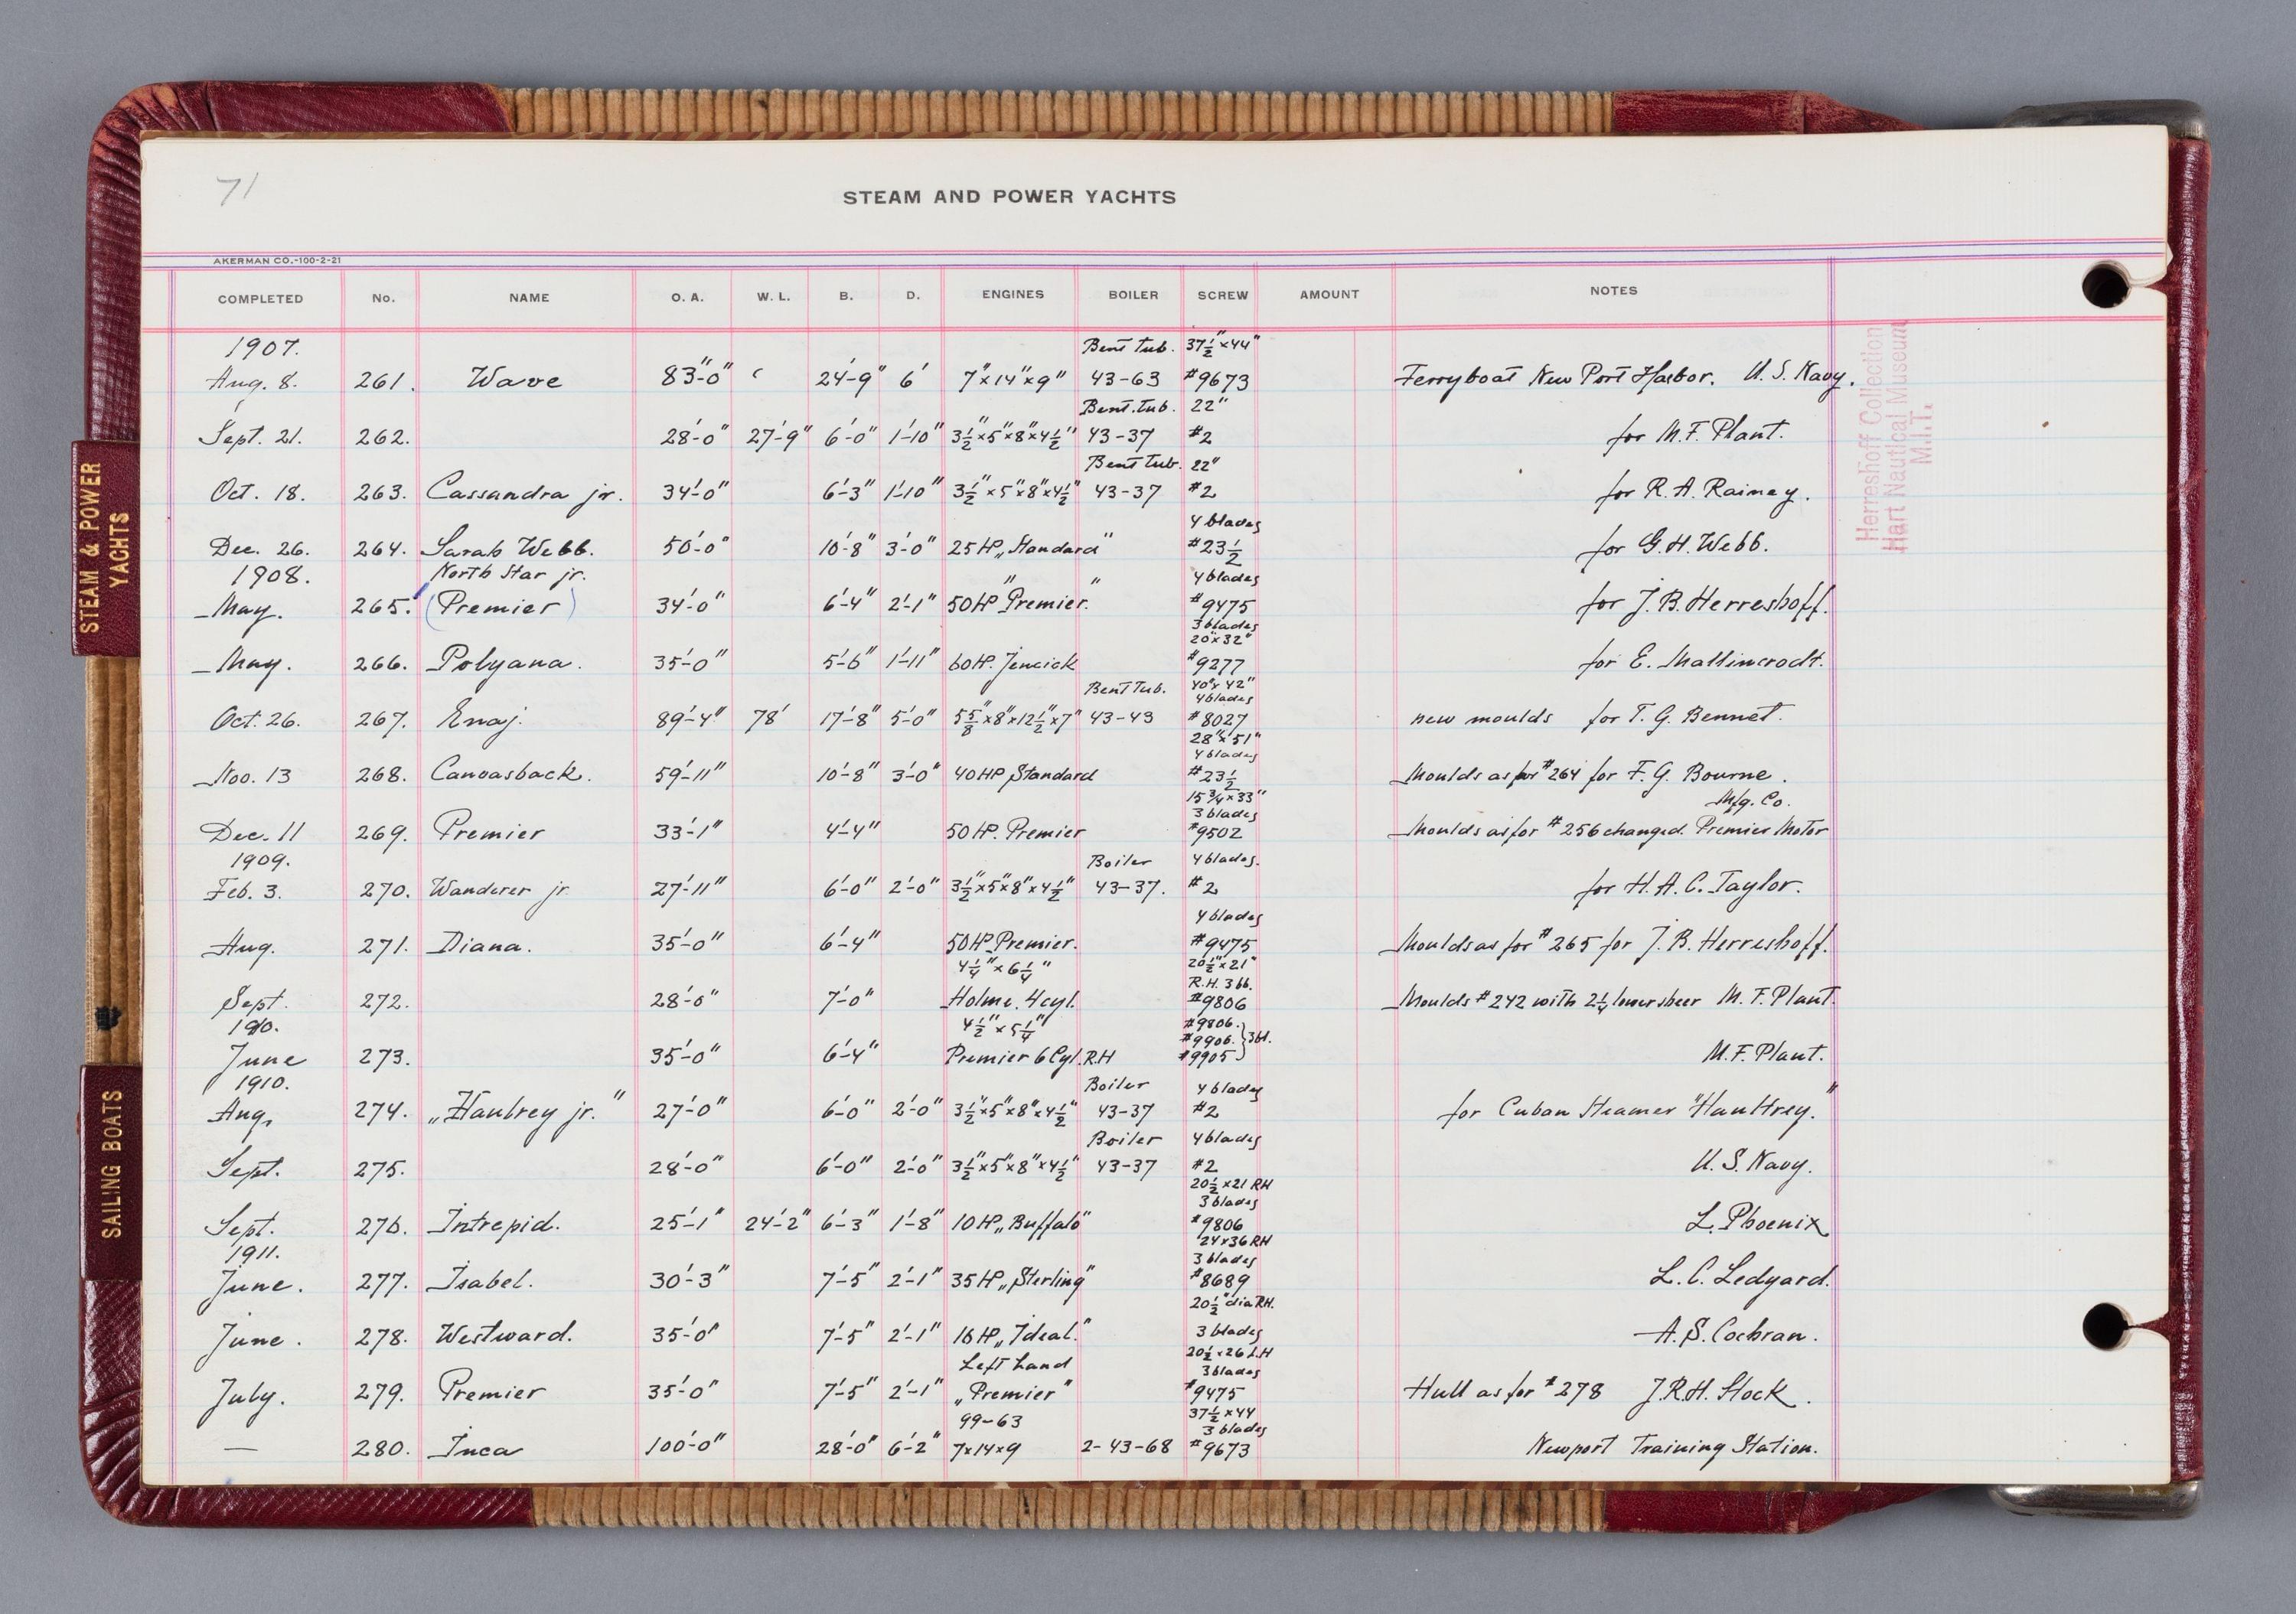 71
STEAM AND POWER YACHTS
AKERMAN CO.-100-2-21
COMPLETED No. NAME O. A. W. L. B. D. ENGINES BOILER SCREW AMOUNT NOTES
1907. Bent tub. 37½"×44"
Aug. 8. 261. Wave 83'-0" 24'-9" 6' 7"×14"×9" 43-63 #9673 Ferryboat New Port Harbor. U. S. Navy.
Bent. tub. 22"
Sept. 21. 262. 28'-0" 27'-9" 6'-0" 1'-10" 3½"×5"×8"×4½" 43-37 #2 for M. F. Plant.
Bent tub. 22"
Oct. 18. 263. Cassandra jr. 34'-0" 6'-3" 1'-10" 3½"×5"×8"×4½" 43-37 #2 for R. A. Rainey.
4 blades
Dec. 26. 264. Sarah Webb. 50'-0" 10'-8" 3'-0" 25 HP „Standard" #23½ for G. H. Webb.
1908. North Star jr. 4 blades
May. 265. (Premier) 34'-0" 6'-4" 2'-1" 50 HP "Premier." #9475 for J. B. Herreshoff.
3 blades
20"×32"
May. 266. Polyana. 35'-0" 5'-6" 1'-11" 60 HP. Jencick #9277 for E. Mallincrodt.
Bent Tub. 40"×42"
4 blades
Oct. 26. 267. Enaj. 89'-4" 78' 17'-8" 5'-0" 5⅝"×8"×12½"×7" 43-43 #8027 new moulds for T. G. Bennet.
28"×51"
4 blades
Nov. 13 268. Canvasback. 59'-11" 10'-8" 3'-0" 40 HP Standard #23½ Moulds as for #264 for F. G. Bourne.
15¾×33"
3 blades Mfg. Co.
Dec. 11 269. Premier 33'-1" 4'-4" 50 HP. Premier #9502 Moulds as for #256 changed. Premier Motor
1909. Boiler 4 blades.
Feb. 3. 270. Wanderer jr 27'-11" 6'-0" 2'-0" 3½"×5"×8"×4½" 43-37. #2 for H. A. C. Taylor.
4 blades
Aug. 271. Diana. 35'-0" 6'-4" 50 HP Premier. #9475 Moulds as for #265 for J. B. Herreshoff.
4¼"×6¼" 20½"×21"
R.H. 3 bb.
Sept. 272. 28'-0" 7'-0" Holme. 4 cyl. #9806 Moulds #242 with 2¼ lower sheer M. F. Plant.
1910. 4½"×5¼" #9806.
#9906. } 3 bl.
June 273. 35'-0" 6'-4" Premier 6 Cyl. RH #9905 M. F. Plant.
1910. Boiler 4 blades
Aug. 274. „Hautrey jr." 27'-0" 6'-0" 2'-0" 3½"×5"×8"×4½" 43-37 #2 for Cuban Steamer "Hautrey."
Boiler 4 blades
Sept. 275. 28'-0" 6'-0" 2'-0" 3½"×5"×8"×4½" 43-37 #2 U. S. Navy.
20½×21 RH
3 blades
Sept. 276. Intrepid. 25'-1" 24'-2" 6'-3" 1'-8" 10 HP „Buffalo" #9806 L. Phoenix
1911. 24×36 RH
3 blades
June. 277. Isabel. 30'-3" 7'-5" 2'-1" 35 HP „Sterling" #8689 L. C. Ledyard.
20½" dia RH.
June. 278. Westward. 35'-0" 7'-5" 2'-1" 16 HP „Ideal." 3 blades A. S. Cochran.
Left hand 20½×26 LH
3 blades
July. 279. Premier 35'-0" 7'-5" 2'-1" „Premier" #9475 Hull as for #278 J. R. H. Stock.
99-63 37½×44
3 blades
— 280. Inca 100'-0" 28'-0" 6'-2" 7×14×9 2-43-68 #9673 Newport Training Station.
Herreshoff Collection
Hart Nautical Museum
M.I.T.
STEAM & POWER
YACHTS
SAILING BOATS